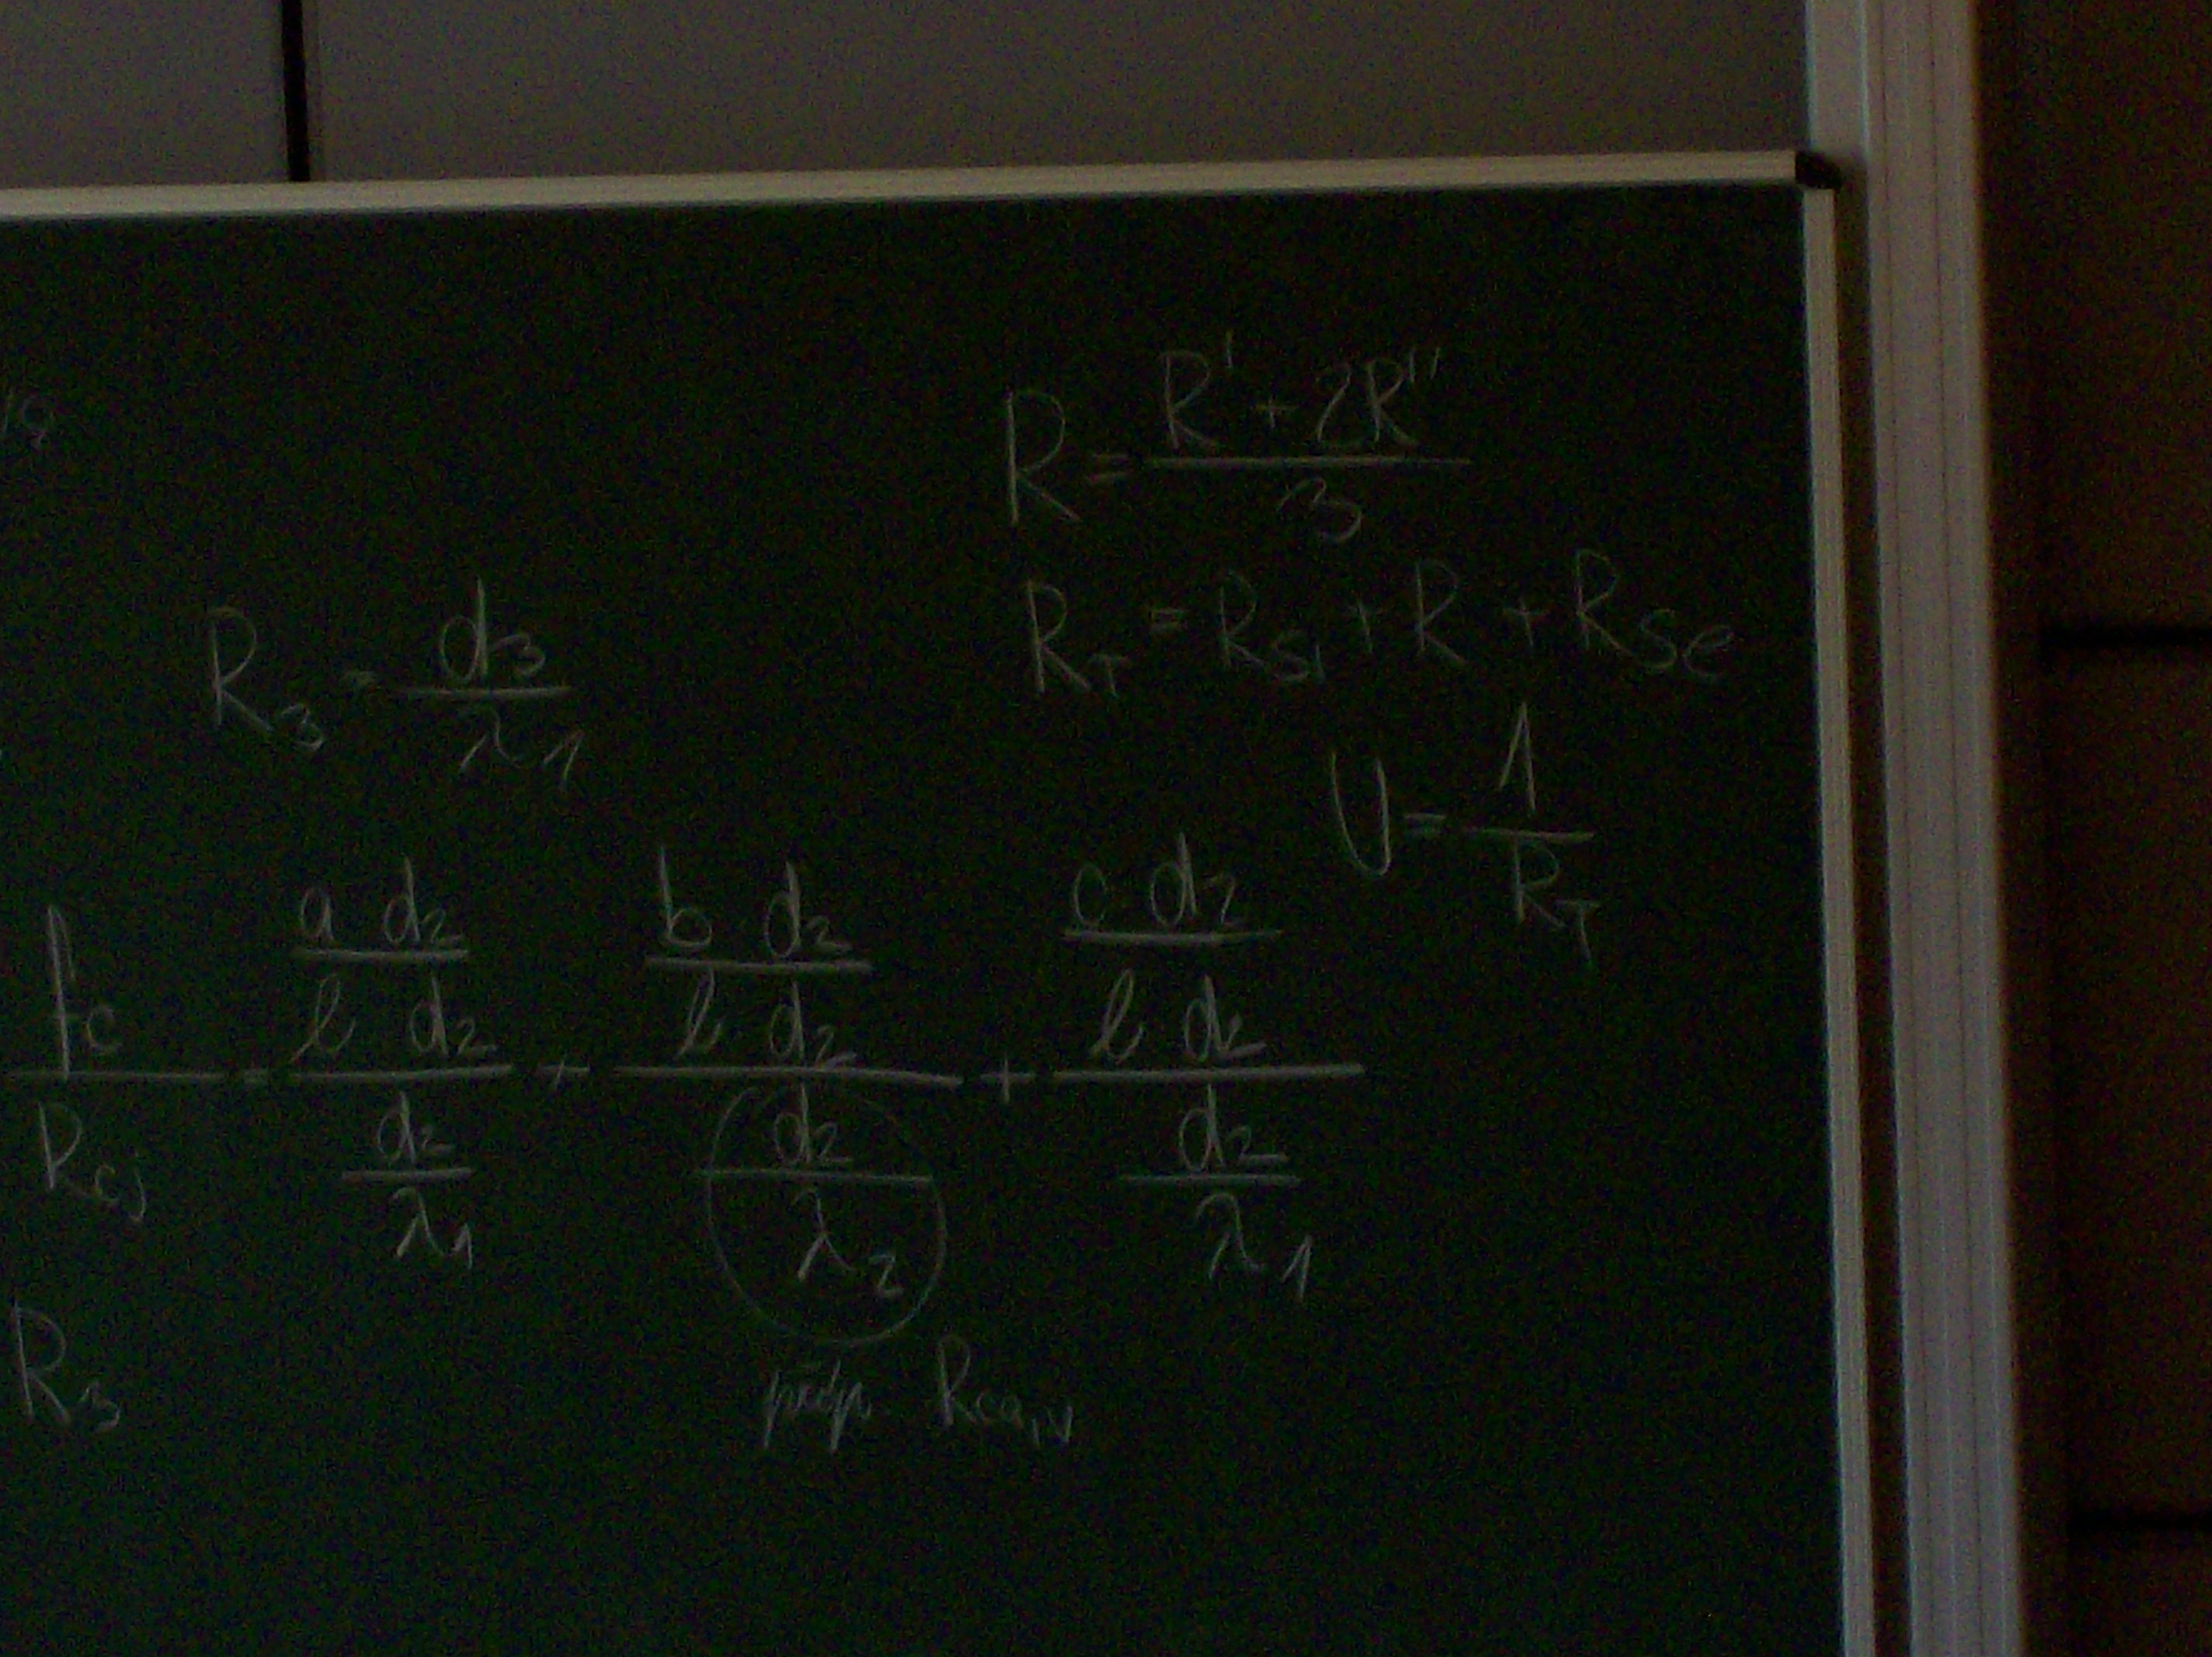 R = (R' + 2R'') / 3
R₃ = d₃ / λ₁
R_T = R_si + R + R_se
U = 1 / R_T
f_c / R_cj = ((a d₂) / (l d₂)) / (d₂ / λ₁) + ((b d₂) / (l d₂)) / (d₂ / λ₂) + ((c d₂) / (l d₂)) / (d₂ / λ₁)
R₃